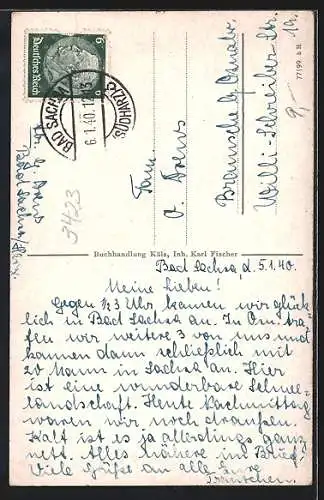 Deutsches Reich
6
BAD SACHSA
(SÜDHARZ)
6.1.40.12
Fam.
A. Drews
Bramsche b/ Osnabr.
Willi-Schreiber-Str.
19.
77199 b H
3423
Buchhandlung Kölz, Inh. Karl Fischer
Bad Sachsa, d. 5.1.40.
Meine Lieben!
Gegen ½3 Uhr kamen wir glück-
lich in Bad Sachsa an. In Om. tra-
fen wir weitere 3 von uns und
kamen dann schließlich mit
20 Mann in Sachsa an. Hier
ist eine wunderbare Schnee-
landschaft. Heute Nachmittag
waren wir noch draußen.
Kalt ist es ja allerdings ganz
nett. Alles nähere im Brief!
Viele Grüße an alle Eure
Träutchen.
Drews
Bad Sachsa/